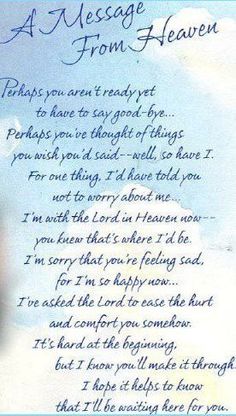 A Message
From Heaven
Perhaps you aren't ready yet
to have to say good-bye...
Perhaps you've thought of things
you wish you'd said--well, so have I.
For one thing, I'd have told you
not to worry about me...
I'm with the Lord in Heaven now--
you knew that's where I'd be.
I'm sorry that you're feeling sad,
for I'm so happy now...
I've asked the Lord to ease the hurt
and comfort you somehow.
It's hard at the beginning,
but I know you'll make it through.
I hope it helps to know
that I'll be waiting here for you.